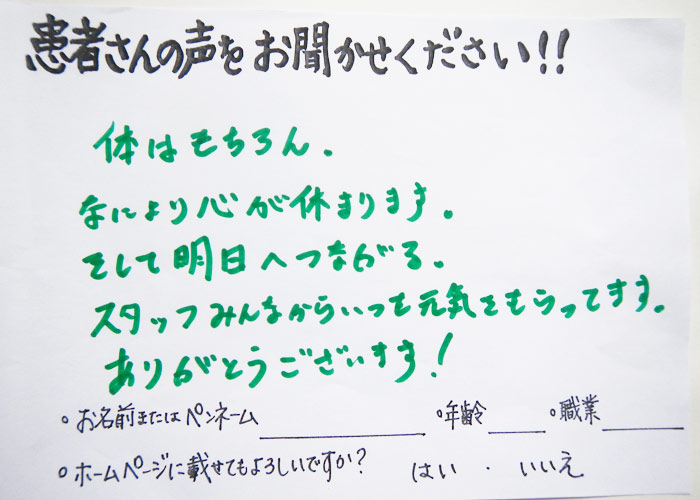 患者さんの声をお聞かせください!!
体はもちろん.
なにより心が休まります.
そして明日へつながる.
スタッフみんなからいつも元気をもらってます.
ありがとうございます!
○お名前またはペンネーム ○年齢 ○職業
○ホームページに載せてもよろしいですか? はい・いいえ